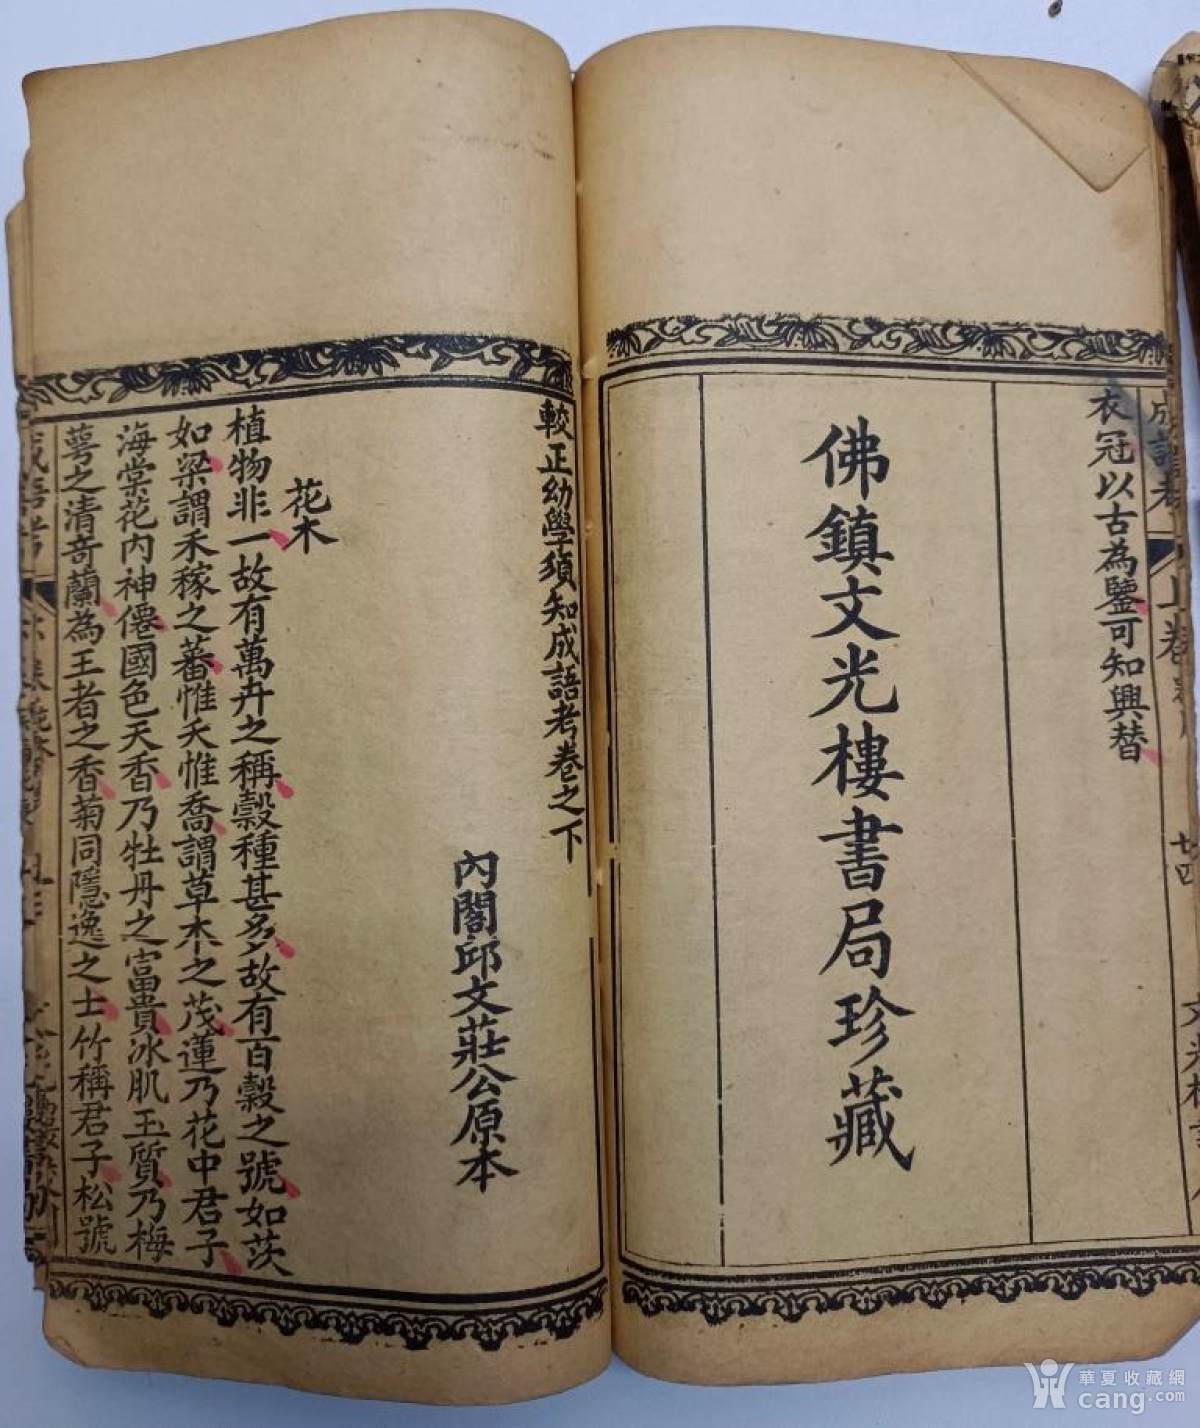 衣冠以古為鑒可知興替
佛鎮文光樓書局珍藏
較正幼學須知成語考卷之下
內閣邱文莊公原本
花木
植物非一故有萬卉之稱穀種甚多故有百穀之號如茨
如梁謂禾稼之蕃惟夭惟喬謂草木之茂蓮乃花中君子
海棠花內神僊國色天香乃牡丹之富貴冰肌玉質乃梅
萼之清奇蘭為王者之香菊同隱逸之士竹稱君子松號
華夏收藏網
cang.com